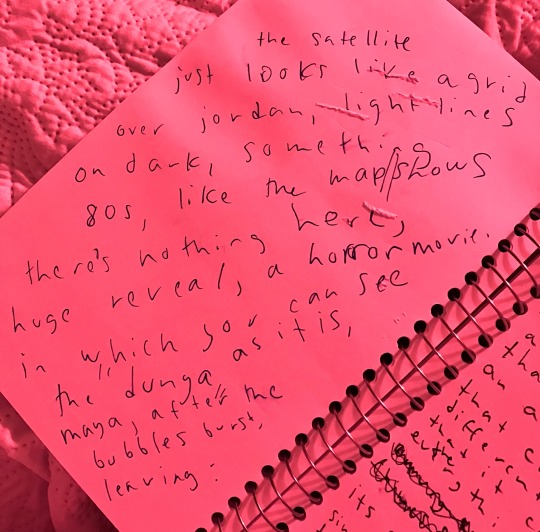 the satellite
just looks like a grid
over jordan, light lines
on dark, something
80s, like the map/shows
there's nothing here,
huge reveal, a horror movie.
in which you can see
the dunya as it is,
maya, after the
bubbles burst,
leaving:
a
as tha
that a
differenc
either
the
its